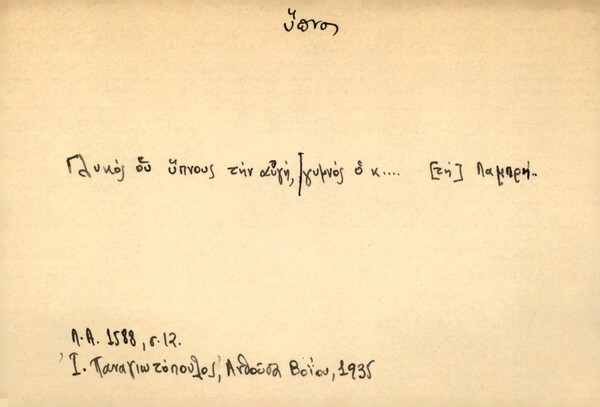 ὕπνος
Γλυκός οὗ ὕπνους τὴν αὐγή, / γυμνός ὁ κ.... [τὴ] Λαμπρή..
Λ.Α. 1588, σ. 12.
Ἰ. Παναγιωτόπουλος, Ἀνθούσα Βοΐου, 1935